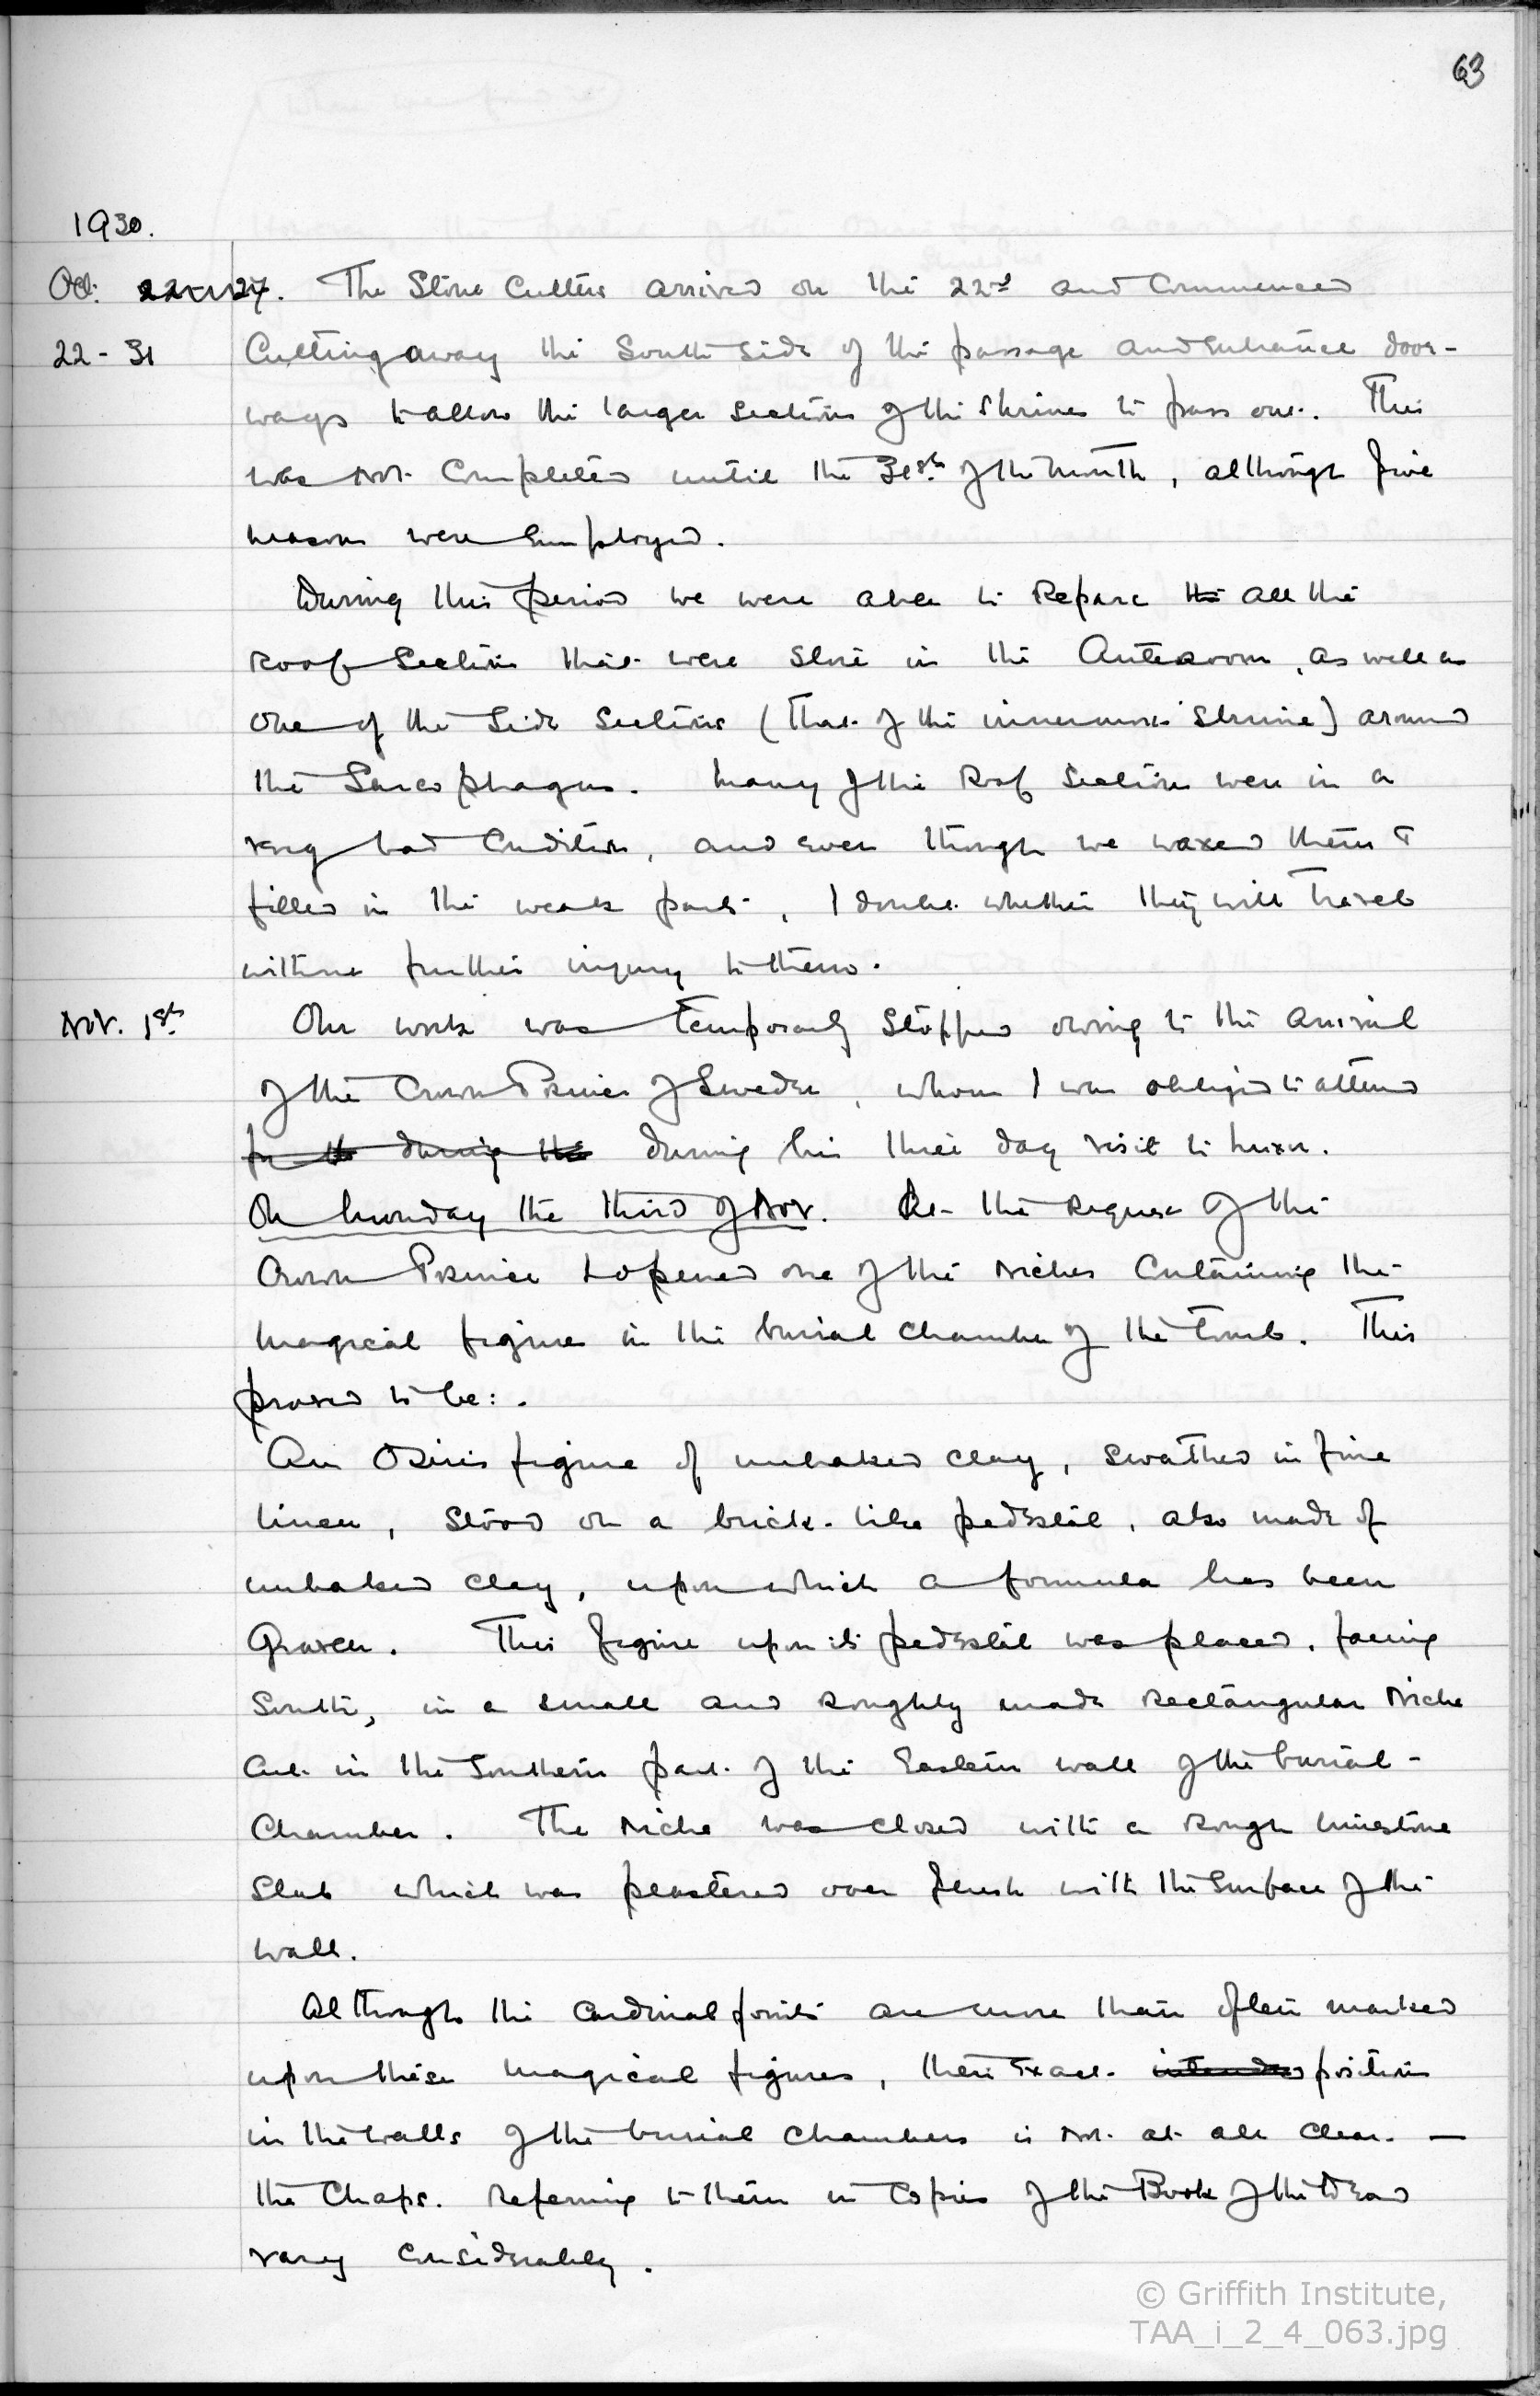 63
1930.
Oct. 22 27. The Stone Cutters arrived on the 22nd and Commenced
22 - 31 Cutting away the South side of the passage and entrance door-
ways to allow the larger sections of the shrines to pass out. This
was not completed until the 31st of the month, although five
masons were employed.
During this period we were able to repare the all the
roof sections that were stored in the Anteroom, as well as
one of the side sections (that of the innermost shrine) around
the Sarcophagus. Many of the roof sections were in a
very bad condition, and even though we waxed them &
filled in the weak parts, I doubt whether they will travel
without further injury to them.
Nov. 1st Our work was temporarly stopped owing to the arrival
of the Crown Prince of Sweden, whom I was obliged to attend
for the during the during his three day visit to Luxor.
On Monday the third of Nov. At the request of the
Crown Prince I opened one of the niches containing the
magical figures in the burial chamber of the tomb. This
proved to be: .
An Osiris figure of unbaked clay, swathed in fine
linen, stood on a brick-like pedestal, also made of
unbaked clay, upon which a formula has been
graven. This figure upon its pedestal was placed, facing
South, in a small and roughly made rectangular niche
cut in the Southern part of the Eastern wall of the burial-
chamber. The niche was closed with a rough limestone
slab which was plastered over flush with the surface of the
wall.
Although the cardinal points are more than often marked
upon these magical figures, their exact intended positions
in the walls of the burial chambers is not at all clear. —
the Chaps. referring to them in copies of the Book of the Dead
vary considerably.
© Griffith Institute,
TAA_i_2_4_063.jpg